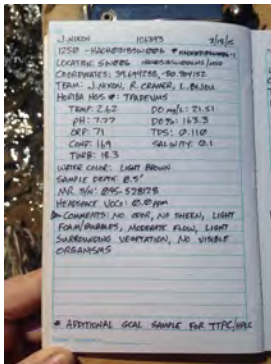 J. NIXON 106393 3/19/15
1250 - HACH03151SW006 *
LOCATION: SW006
COORDINATES: 39.644788, -80.784152
TEAM: J. NIXON, R. CRAMER, L. BENDU
HORIBA HGS #: TPADEVMS
TEMP: 2.62 DO mg/L: 21.51
pH: 7.77 DO%: 163.3
ORP: 71 TDS: 0.110
COND: 169 SALINITY: 0.1
TURB: 18.3
WATER COLOR: LIGHT BROWN
SAMPLE DEPTH: 0.5'
MR S/N: 095-528128
HEADSPACE VOCs: 0.0 ppm
COMMENTS: NO ODOR, NO SHEEN, LIGHT
FOAM/BUBBLES, MODERATE FLOW, LIGHT
SURROUNDING VEGETATION, NO VISIBLE
ORGANISMS
* ADDITIONAL GCAL SAMPLE FOR